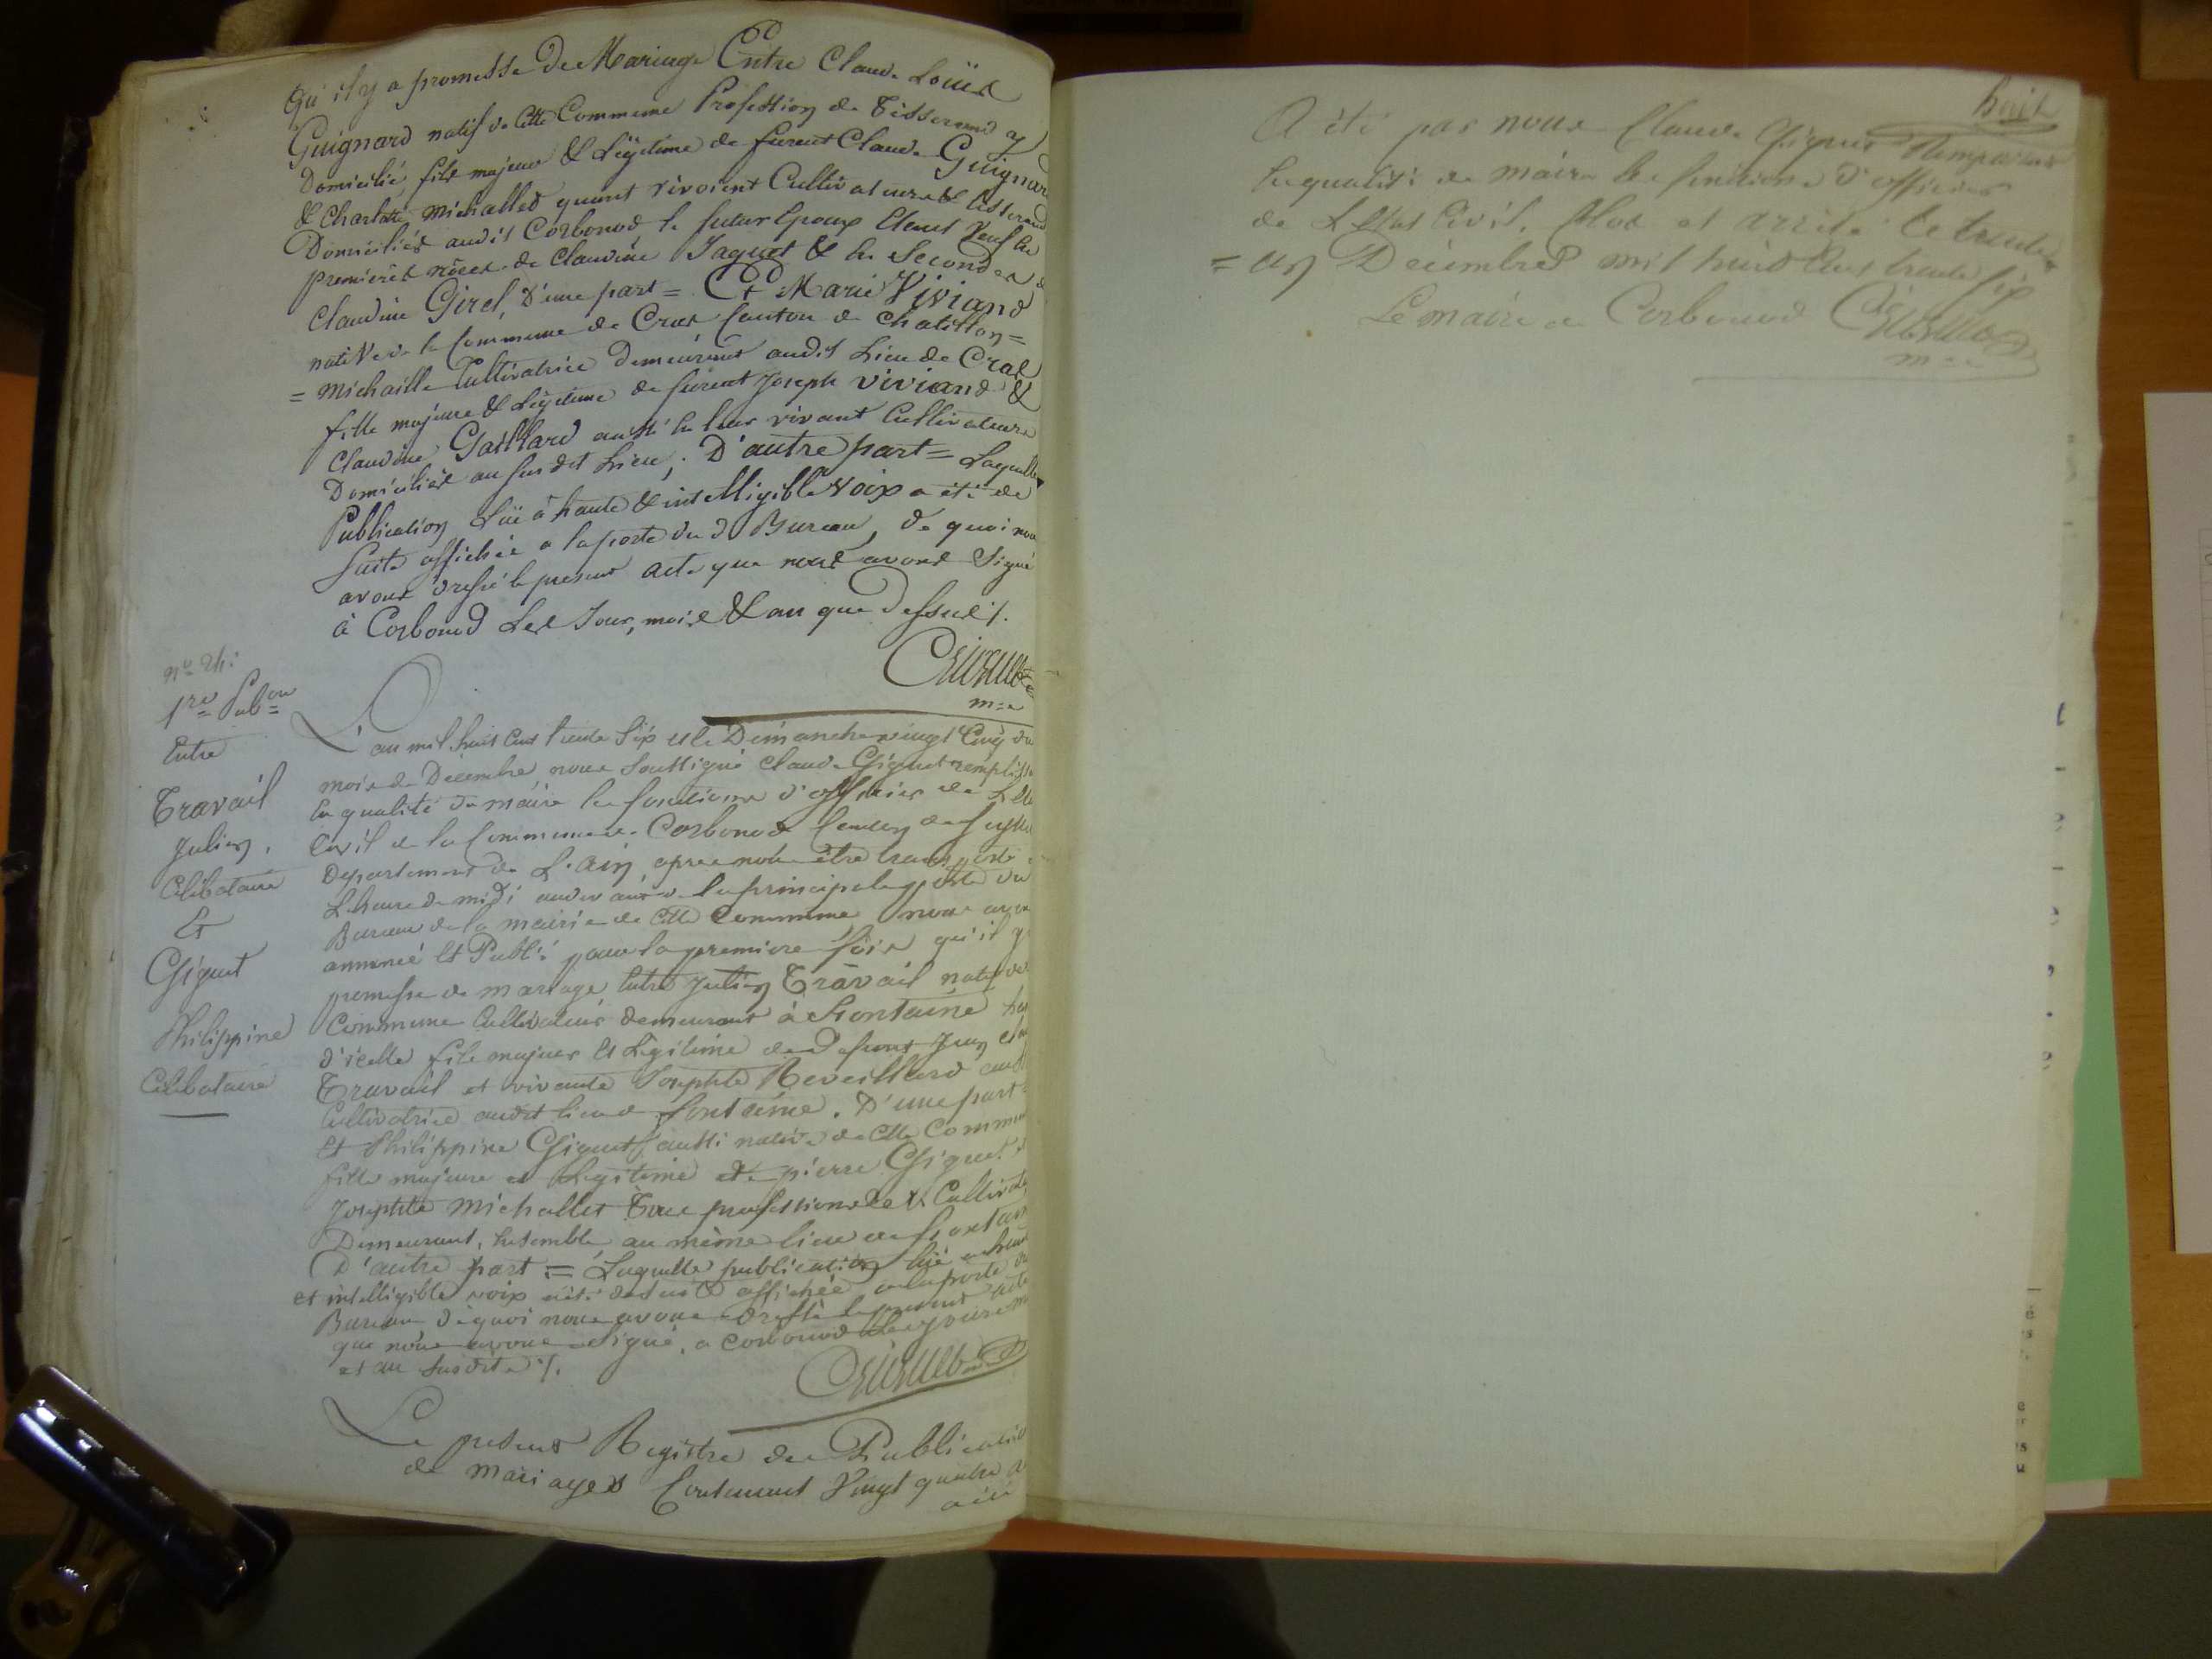 Qu'il y a promesse de Mariage Entre Claude Loüis
Guignard natif de Cette Commune Profession de Tisserand y
Domicilié, fils majeur & Légitime de furent Claude Guignar
& Charlotte michallet quant vivoient Cultivateurs & tisserand
Domiciliés audit Corbonod le futur Epoux Etant Veuf en
premières nôces de Claudine Jaquet & en Secondes de
Claudine Girel, D'une part = Et Marie Viviand
native de la Commune de Cras Canton de Chatillon =
= michaille Cultivatrice Demeurant audit Lieu de Cras
fille majeure & Légitime de furent Joseph Viviand &
Claudine Gaillard aussi de leur vivant Cultivateurs
Domiciliés au susdit Lieu; D'autre part = Laquelle
Publication Lüe à haute & intelligible voix a été de
Suite affichée a la porte du d Bureau, de quoi nous
avons dressé le présent acte que nous avons Signé
à Corbonod Les Jour, mois & an que Dessus /.
m=e
1re Pub=on
Entre
Travail
Julien,
Célibataire
Et
Giguet
Philippine
Célibataire
L'an mil huit Cent trente Six et le Dimanche vingt Cinq du
mois de Décembre nous Soussigné Claude Giguet remplissa
En qualité de maire les fonctions d'officier de L'Eta
Civil de la Commune de Corbonod Canton de Seysse
Département de L'Ain, après nous être transporté a
L'heure de midi audevant de la principale porte du
Bureau de la mairie de Cette Commune nous avon
annoncé Et Publié pour la première fois qu'il y a
promesse de mariage Entre Julien Travail natif de
Commune Cultivateur demeurant à Fontaine
d'icelle fils majeur Et Légitime de Defunt Jean
Travail et vivante Josephte Reveillard
Cultivatrice audit lieu de fontaine. D'une part =
Et Philippine Giguet aussi native de Cette Commun
fille majeure et Légitime de pierre Giguet &
Josephte Michallet Tous professionde Cultivate
Demeurant, Ensemble au même lieu de Fontain
D'autre part = Laquelle publication lüe a haut
et intelligible voix a été de suite affichée a la porte du
Bureau de quoi nous avons dressé le présent acte
que nous avons Signé, a Corbonod Les jour m
et an susdits /.
Le présent Registre des Publicatio
de mariages Contenant Vingt quatre
a été
huit
A été par nous Claude Giguet Remplissant
En qualité de maire les fonctions d'officier
de L'Etat Civil, Clos et arrêté le trente
= un Décembre mil huit Cent trente six
Le maire de Corbonod
m=e